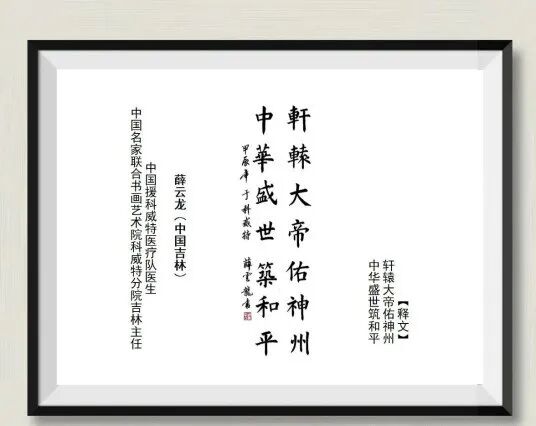 【释文】
轩辕大帝佑神州
中华盛世筑和平
軒轅大帝佑神州
中華盛世築和平
甲辰年于科威特 薛雲龍書
薛云龙（中国吉林）
中国援科威特医疗队医生
中国名家联合书画艺术院科威特分院吉林主任